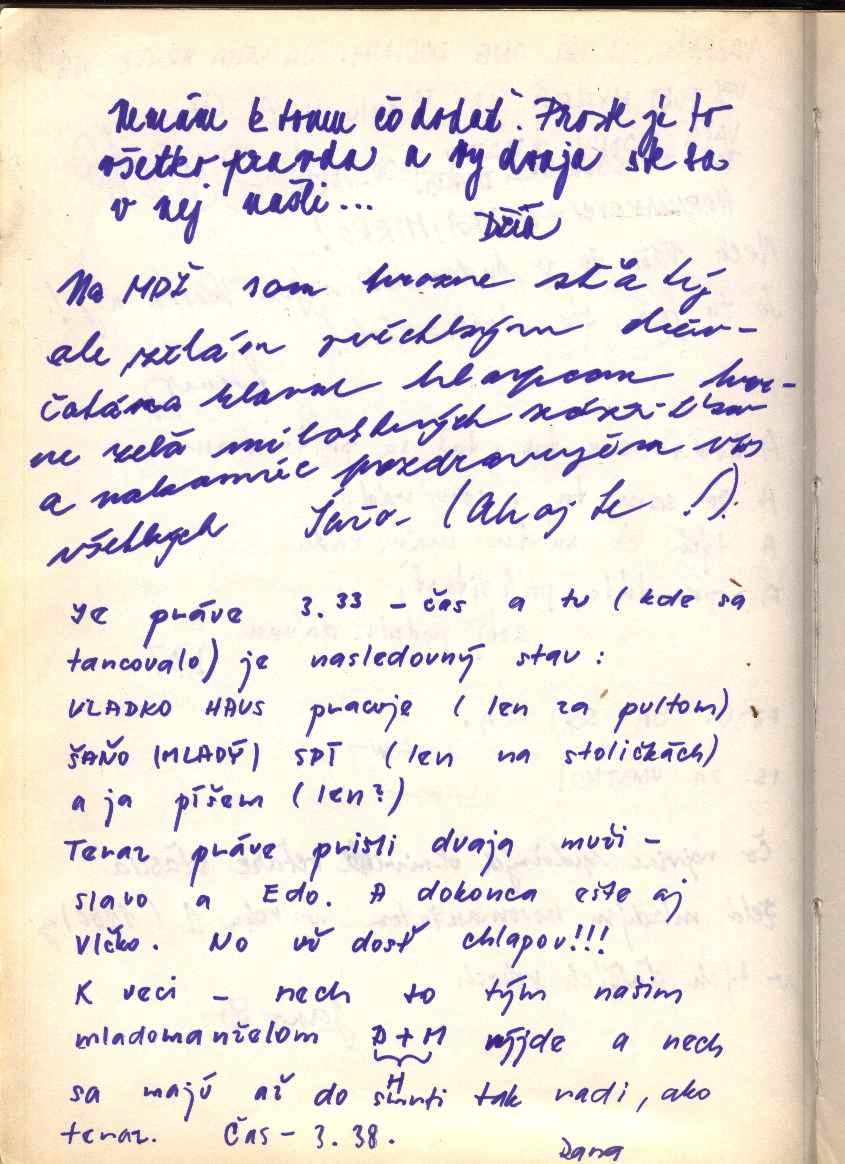 Nemám k tomu čo dodať. Proste je to
všetko pravda a vy dvaja ste sa
v nej našli...
Na MDŽ som hrozne sťatý
ale želám všetkým diev-
čatám a hlavne chlapcom hroz-
ne veľa
a nakoniec pozdravujem vás
všetkých Jaro. (Ahojte!).
Je práve 3.33 - čas a tu (kde sa
tancovalo) je nasledovný stav:
VLADKO HAUS pracuje (len za pultom)
ŠAŇO (MLADÝ) SPÍ (len na stoličkách)
a ja píšem (len?)
Teraz práve prišli dvaja muži -
slavo a Edo. A dokonca ešte aj
Vlčko. No už dosť chlapov!!!
K veci - nech to tým našim
mladomanželom D+M výjde a nech
H
sa majú až do smrti tak radi, ako
teraz. Čas - 3.38.
Dana